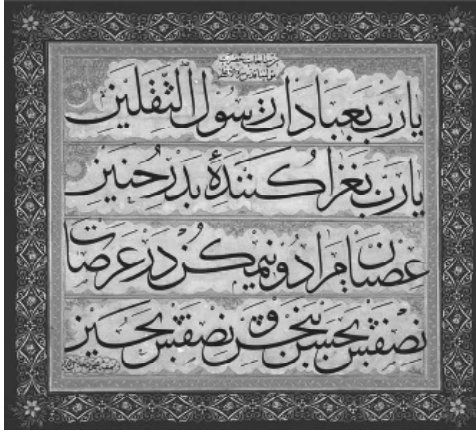 یارب بعبادات رسول الثقلین
یارب بغزا کنندهٔ بدر حنین
عصیان مرا دو نیم کن در عرصات
نصفش بحسن ببخش و نصفش بحسین